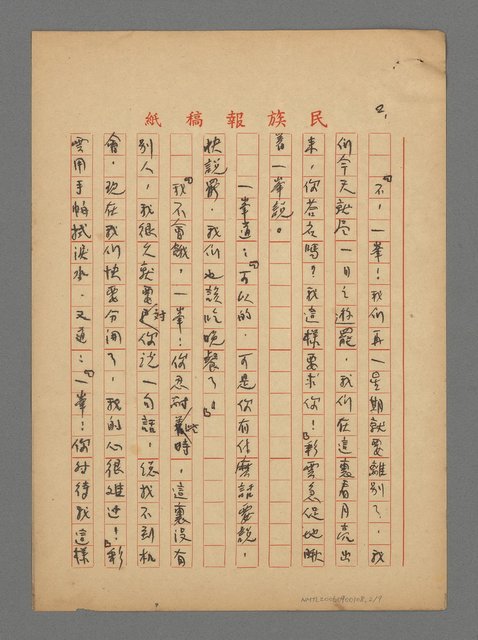 民族報稿紙
2,
「不，一峯！我們再一星期就要離別了，我
們今天就尽一日之游罷，我們在這裏看月亮出
來，你答应嗎？我這樣要求你！」彩雲急促地瞅
着一峯說。
一峯道：「可以的，可是你有什麽話要說，
快說罷，我們也該吃晚餐了。」
「我不會餓，一峯！你忍耐此時，這裏沒有
別人，我很久就要对你说一句話，總找不到机
會，现在我们快要分開了，我的心很难过！」彩
雲用手帕拭淚水，又道：「一峯！你对待我這樣
NMTL20060900108, 2/9